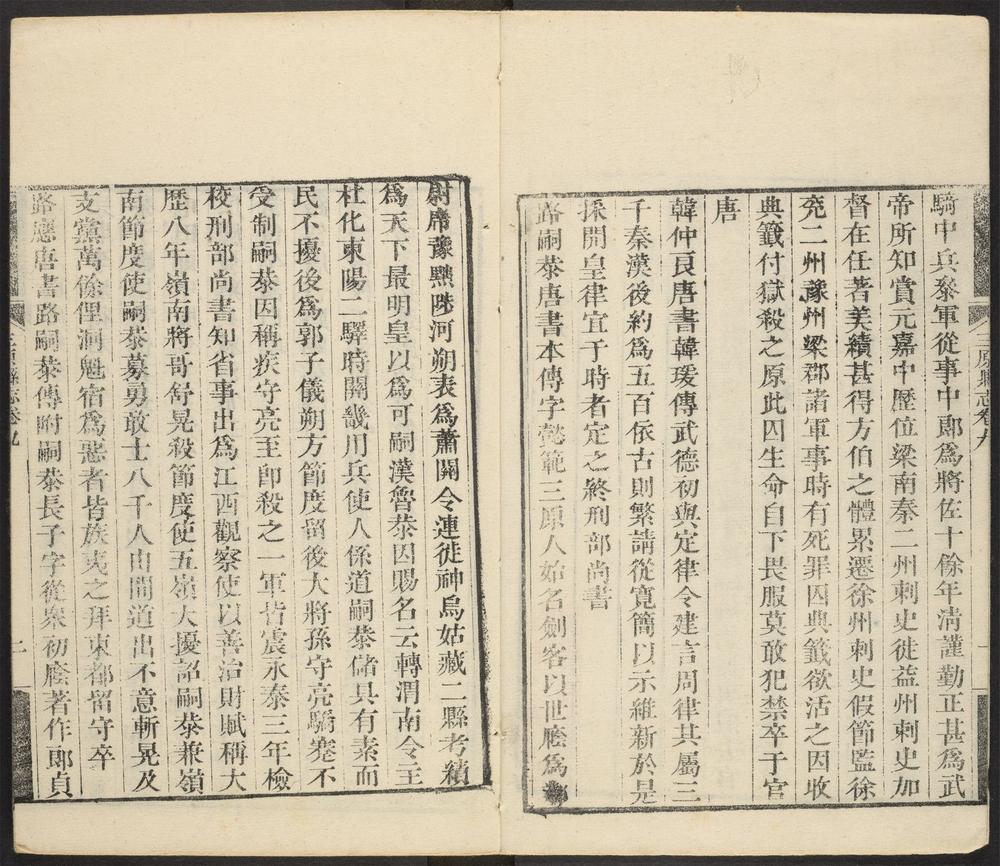 騎中兵叅軍從事中郎爲將佐十餘年淸謹勤正甚爲武
帝所知賞元嘉中歷位梁南秦二州刺史徙益州刺史加
督在任著美績甚得方伯之體累遷徐州刺史假節監徐
兗二州豫州梁郡諸軍事時有死罪囚典籤欲活之因收
典籤付獄殺之原此囚生命自下畏服莫敢犯禁卒于官
唐
韓仲良唐書韓瑗傳武德初與定律令建言周律其屬三
千秦漢後約爲五百依古則繁請從寬簡以示維新於是
採開皇律宜于時者定之終刑部尚書
路嗣恭唐書本傳字懿範三原人始名劍客以世廕爲鄴
三原縣志卷九
尉席豫黜陟河朔表爲蕭關令連徙神烏姑藏二縣考績
爲天下最明皇以爲可嗣漢魯恭因賜名云轉渭南令主
杜化東陽二驛時關畿用兵使人係道嗣恭儲具有素而
民不擾後爲郭子儀朔方節度留後大將孫守亮驕蹇不
受制嗣恭因稱疾守亮至卽殺之一軍皆震永泰三年檢
校刑部尚書知省事出爲江西觀察使以善治財賦稱大
歷八年嶺南將哥舒晃殺節度使五嶺大擾詔嗣恭兼嶺
南節度使嗣恭募勇敢士八千人由間道出不意斬晃及
支黨萬餘俚洞魁宿爲惡者皆族夷之拜東都留守卒
路應唐書路嗣恭傳附嗣恭長子字從衆初廕著作郎貞
縣志卷九